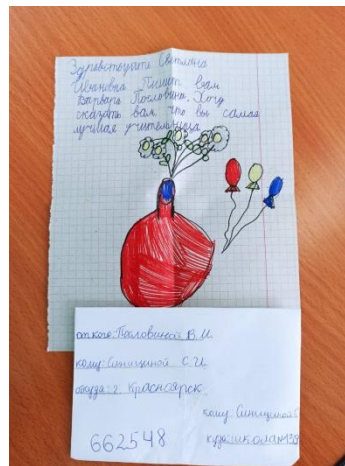 Здравствуйте Светлана
Ивановна Пишит вам
Варвара Пословина. Хочу
сказать вам, что вы самая
лучшая учительница
от кого: Пословиной В. И.
кому: Синициной С. И.
откуда: г. Красноярск
кому: Синициной С
куда: школа №139
662548